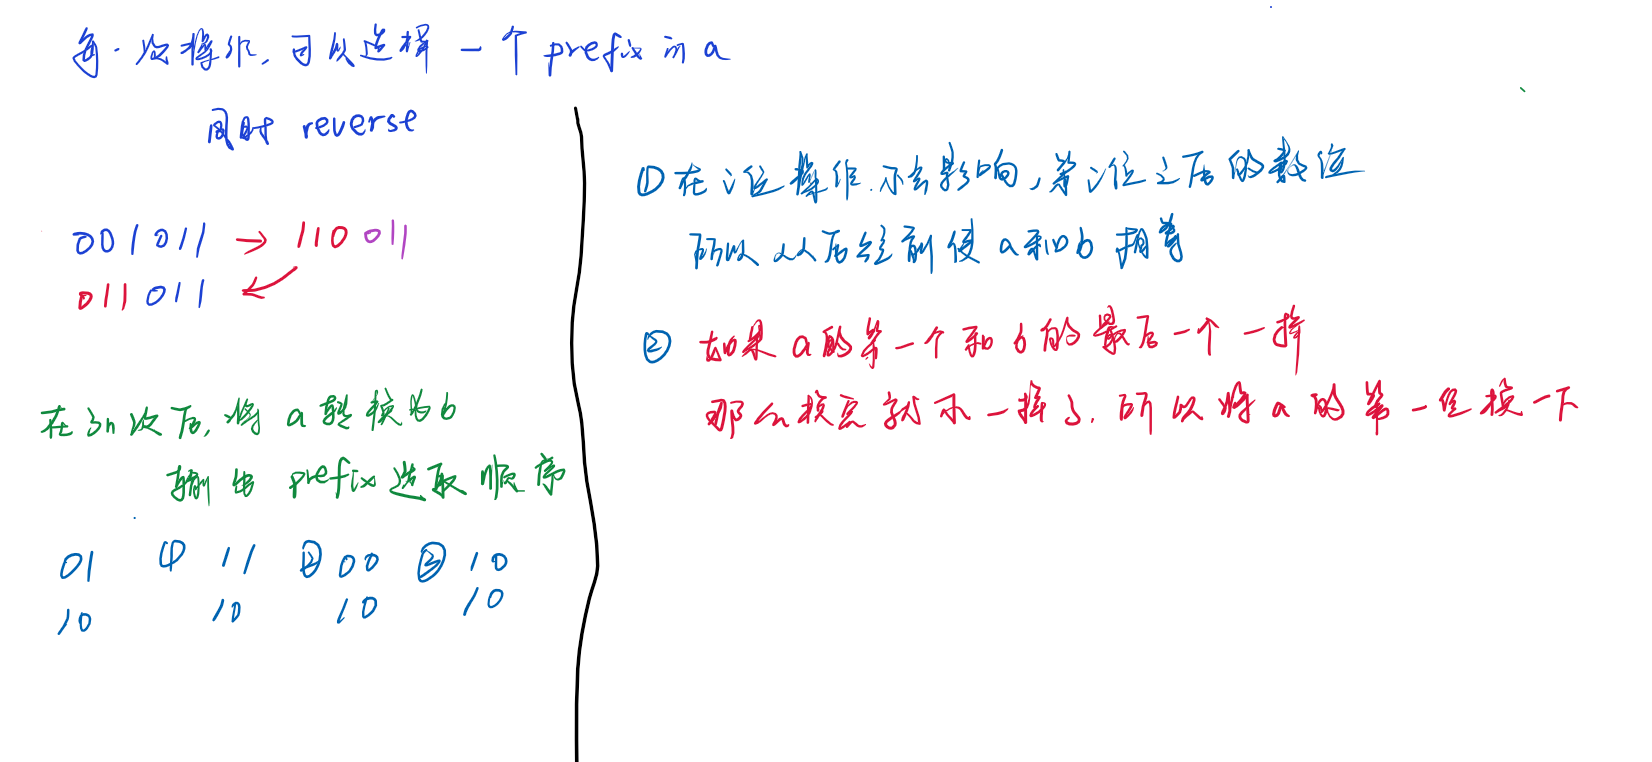 每一次操作,可以选择一个 prefix in a
同时 reverse
001011 → 110011
011011 ←
在3n次后,将 a 转换为 b
输出 prefix 选取顺序
01 ① 11 ② 00 ③ 10
10 10 10 10
①在i位操作.不会影响,第i位之后的数位
所以从后往前使 a和b 相等
② 如果 a的第一个和 b的最后一个一样
那么换完就不一样了.所以将 a 的第一位换一下